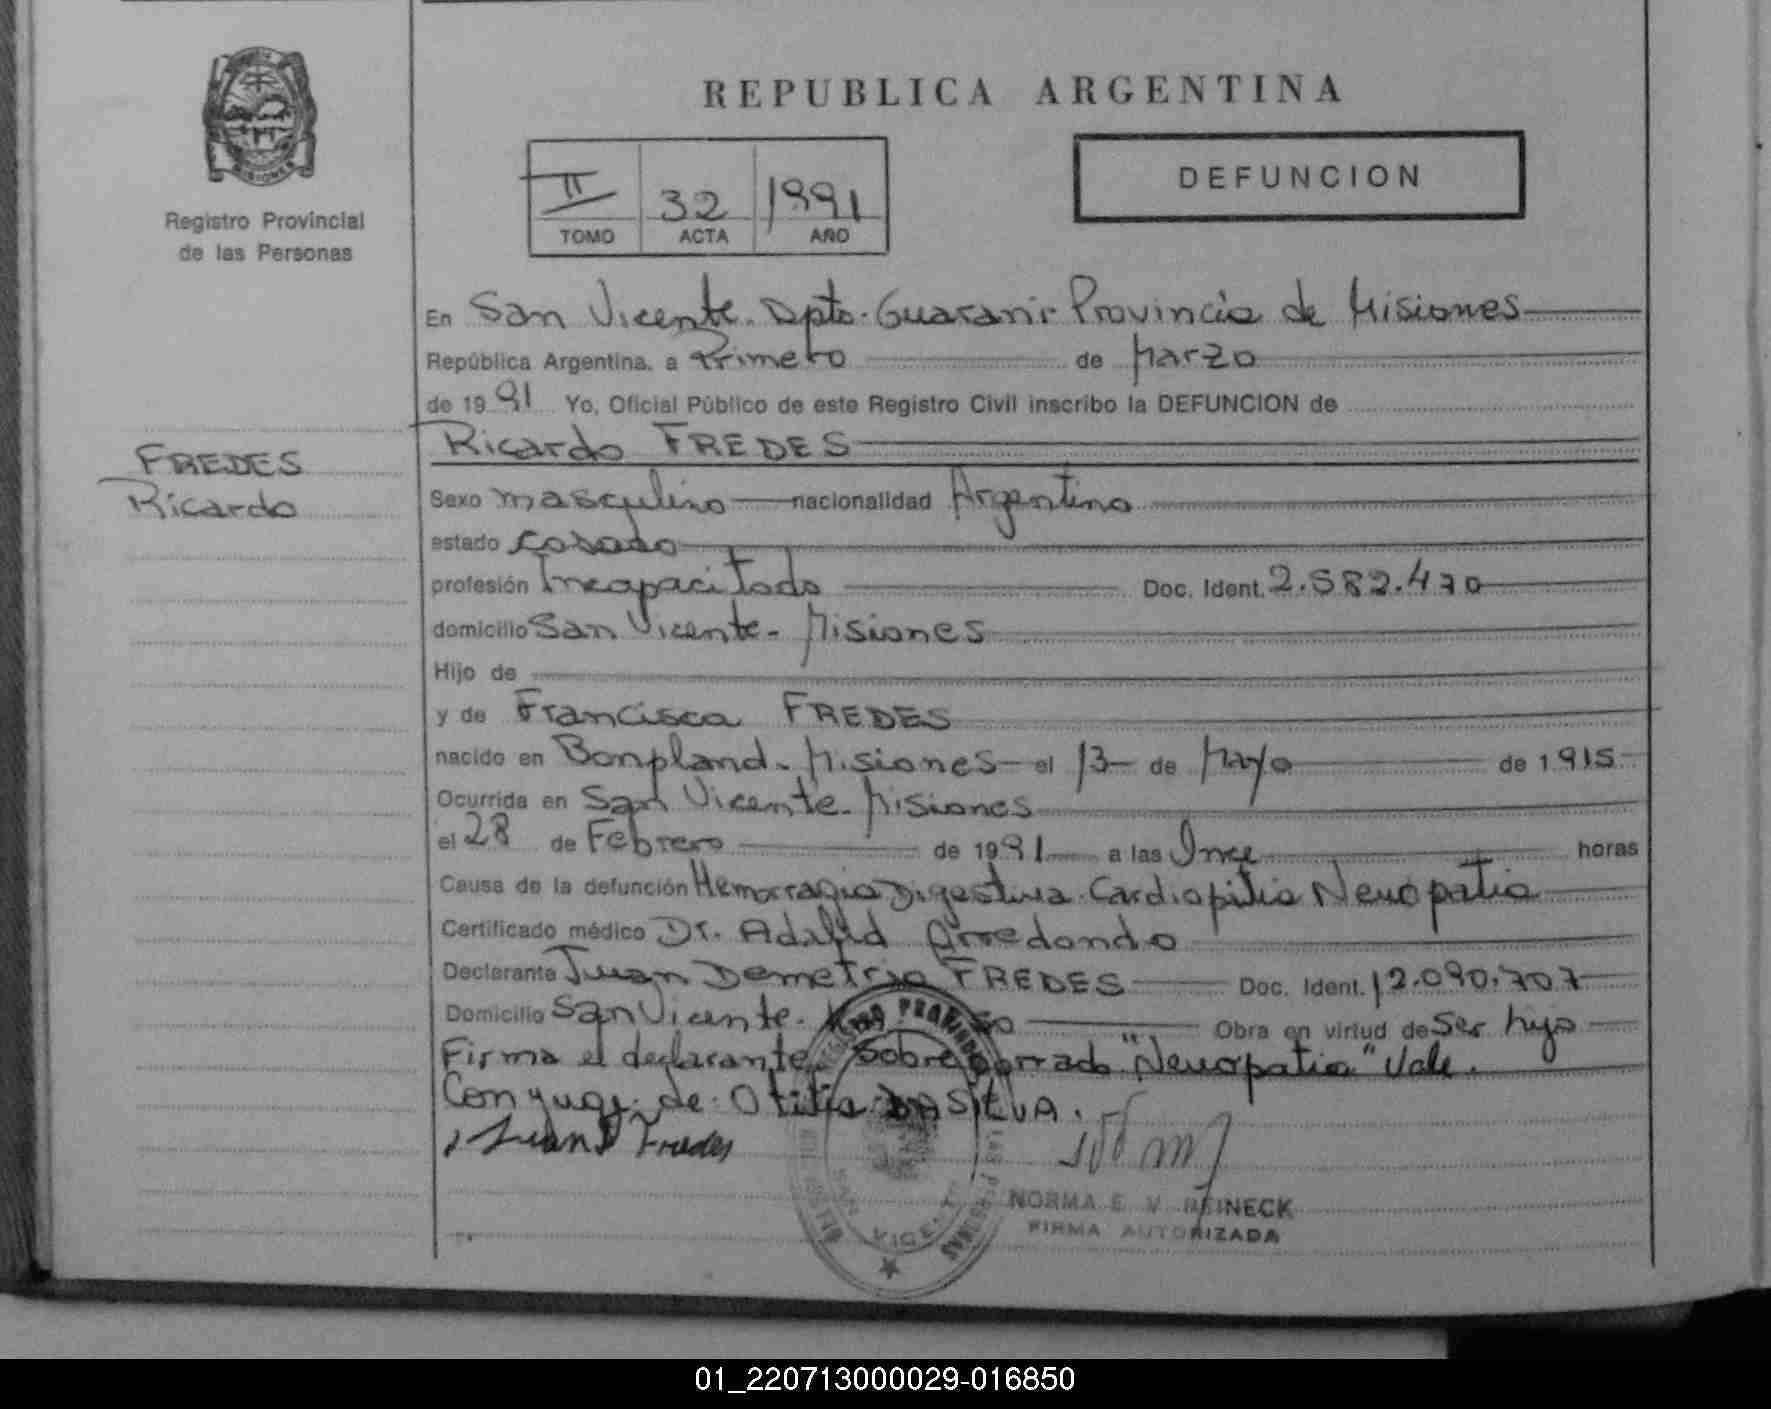 REPUBLICA ARGENTINA
MISIONES
Registro Provincial
de las Personas
II 32 1991
TOMO ACTA AÑO
DEFUNCION
En San Vicente. Dpto. Guaraní- Provincia de Misiones
República Argentina, a Primero de Marzo
de 1991 Yo, Oficial Público de este Registro Civil inscribo la DEFUNCION de
Ricardo FREDES
FREDES
Ricardo
Sexo masculino nacionalidad Argentina
estado casado
profesión Incapacitado Doc. Ident. 2.582.470
domicilio San Vicente - Misiones
Hijo de
y de Francisca FREDES
nacido en Bonpland - Misiones el 13 de Mayo de 1915
Ocurrida en San Vicente - Misiones
el 28 de Febrero de 1991 a las Once horas
Causa de la defunción Hemorragia Digestiva Neuopatia
Certificado médico Dr. Arredondo
Declarante Juan Demetrio FREDES Doc. Ident. 12.090.707
Domicilio San Vicente. Obra en virtud de Ser hijo
Firma el declarante, Sobre borrado "Neuopatia" Vale.
Conyuge de Otilia DA SILVA.
Juan D Fredes
SAN VICENTE
NORMA E. V. REINECK
FIRMA AUTORIZADA
01_220713000029-016850